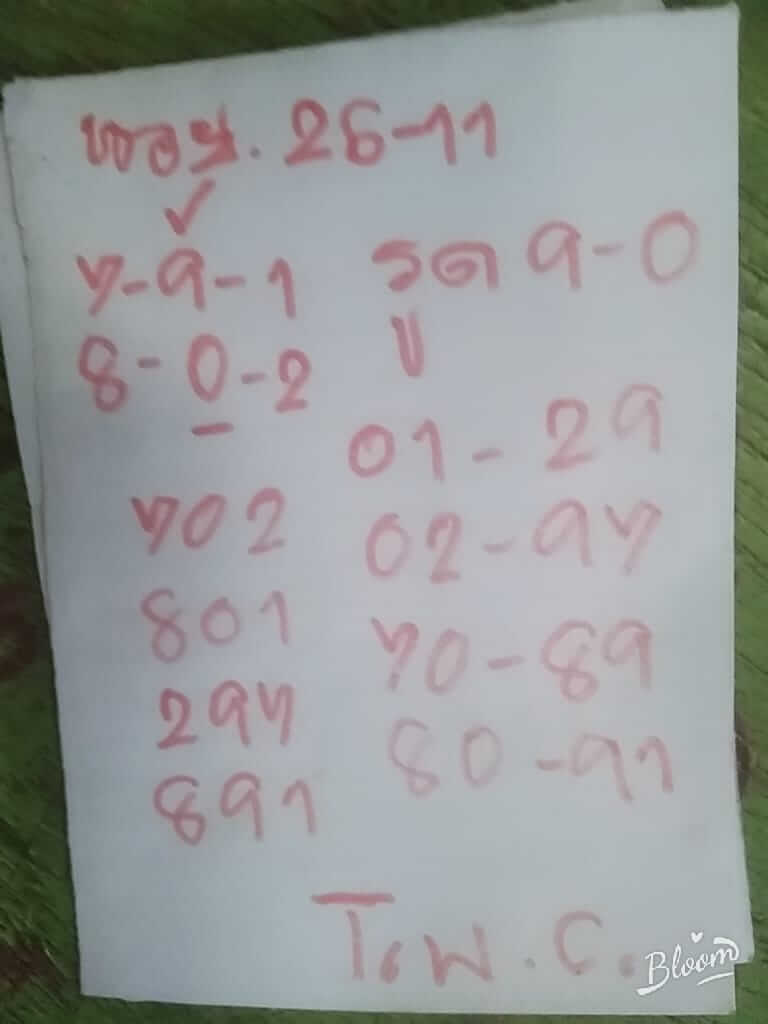 ฮอย. 26-11
✓
7-9-1 รถ 9-0
8-0-2 บ
01-29
702
02-97
801
70-89
297
80-91
891
T.W.C.
Bloom